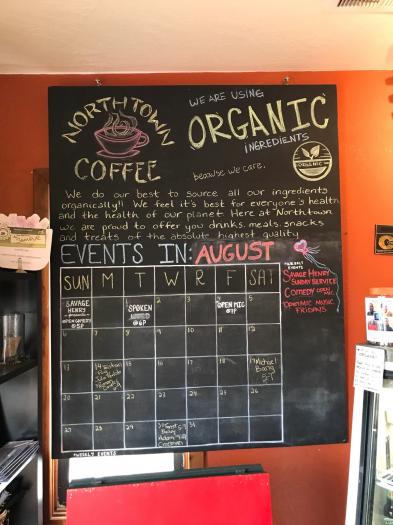 NORTHTOWN
COFFEE
WE ARE USING
ORGANIC
INGREDIENTS
because we care.
ORGANIC
We do our best to source all our ingredients
organically!! We feel it's best for everyone's health
and the health of our planet Here at Northtown
we are proud to offer you drinks, meals, snacks
and treats of the absolute highest quality
EVENTS IN: AUGUST
SUN M T W R F SAT
SAVAGE
HENRY
OPEN COMEDY
@5P
1
SPOKEN
WORD
@6P
2
3
4
OPEN MIC
@7P
5
6
7
8
9
10
11
12
13
14
15
16
17
18
Michael
20
21
22
23
24
25
27
28
29
30
31
WEEKLY
EVENTS
SAVAGE HENRY
SUNDAY SERVICE
COMEDY OPEN MIC
OPEN MIC MUSIC
FRIDAYS
WEEKLY EVENTS